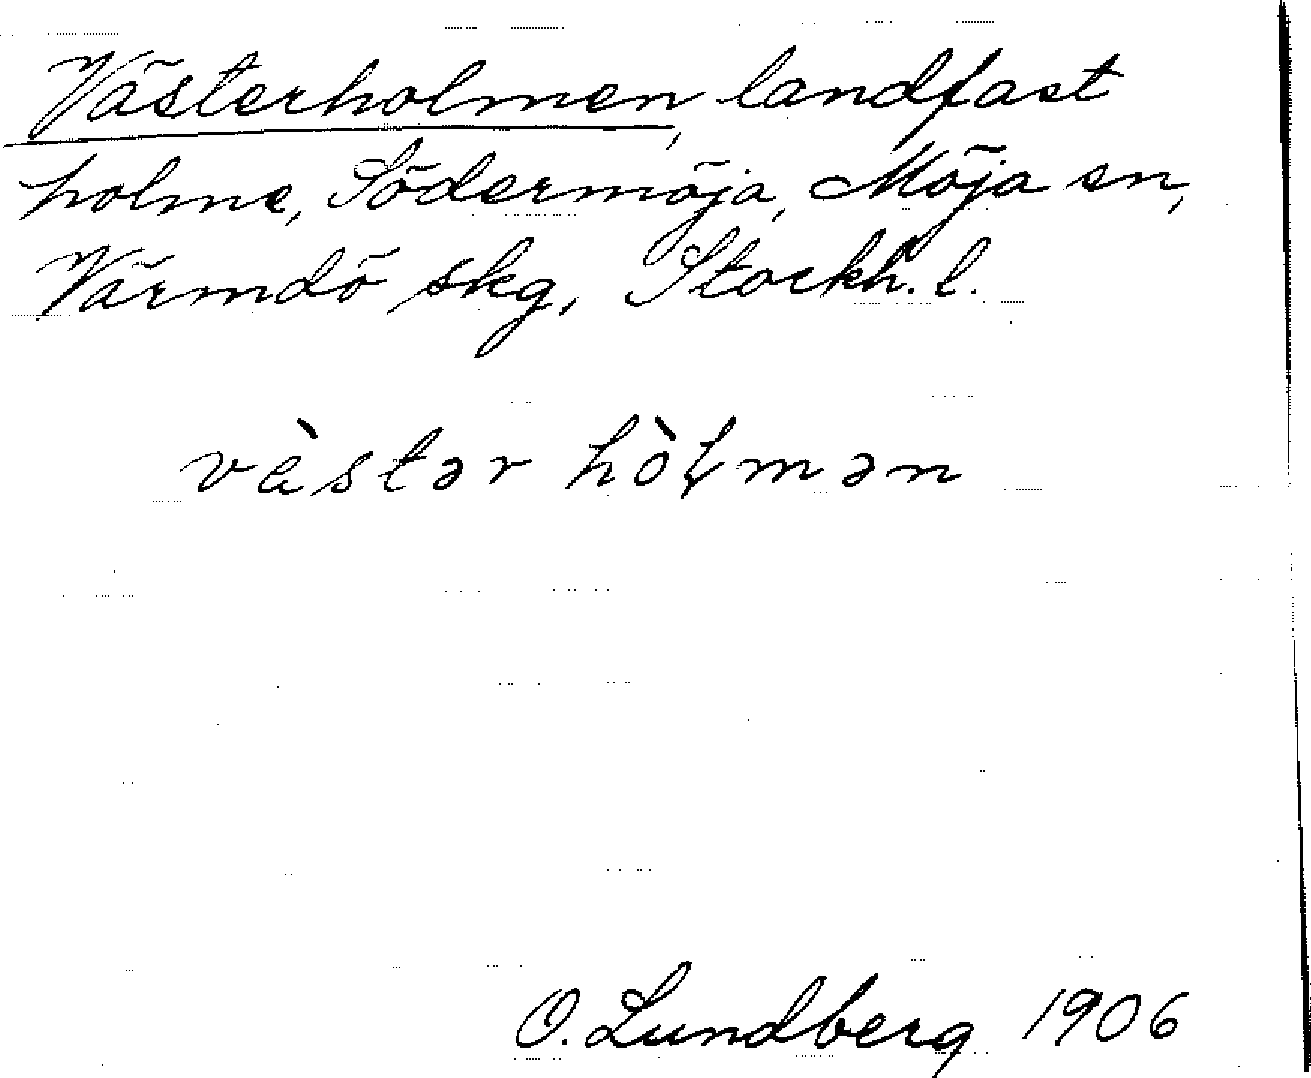 Västerholmen, landfast
holme, Södermöja, Möja sn,
Värmdö skg, Stockh. l.
vèstər hòɫmən
O. Lundberg 1906